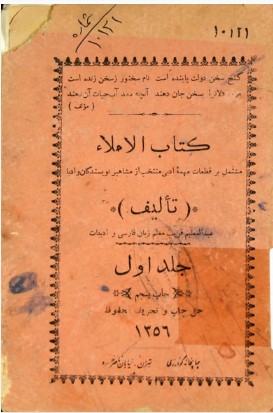 شماره
۱۰۱۲۱
۱۰۱۲۱
گنج سخن دولت پاینده است نام سخنور ز سخن زنده است
سخن جان دهند آنچه دهد آب حیات آن دهند
(مؤلف)
کتاب الاملاء
مشتمل بر قطعات مهمهٔ ادبی منتخب از مشاهیر نویسندگان و ادبا
(تألیف)
عبدالعظیم قریب معلم زبان فارسی و ادبیات
جلد اول
چاپ پنجم
حق چاپ و تحریف محفوظ
۱۳۵۶
چاپخانه طهران، خیابان